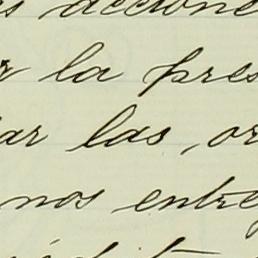 s accione
r la pres
ar las, or
nos entre